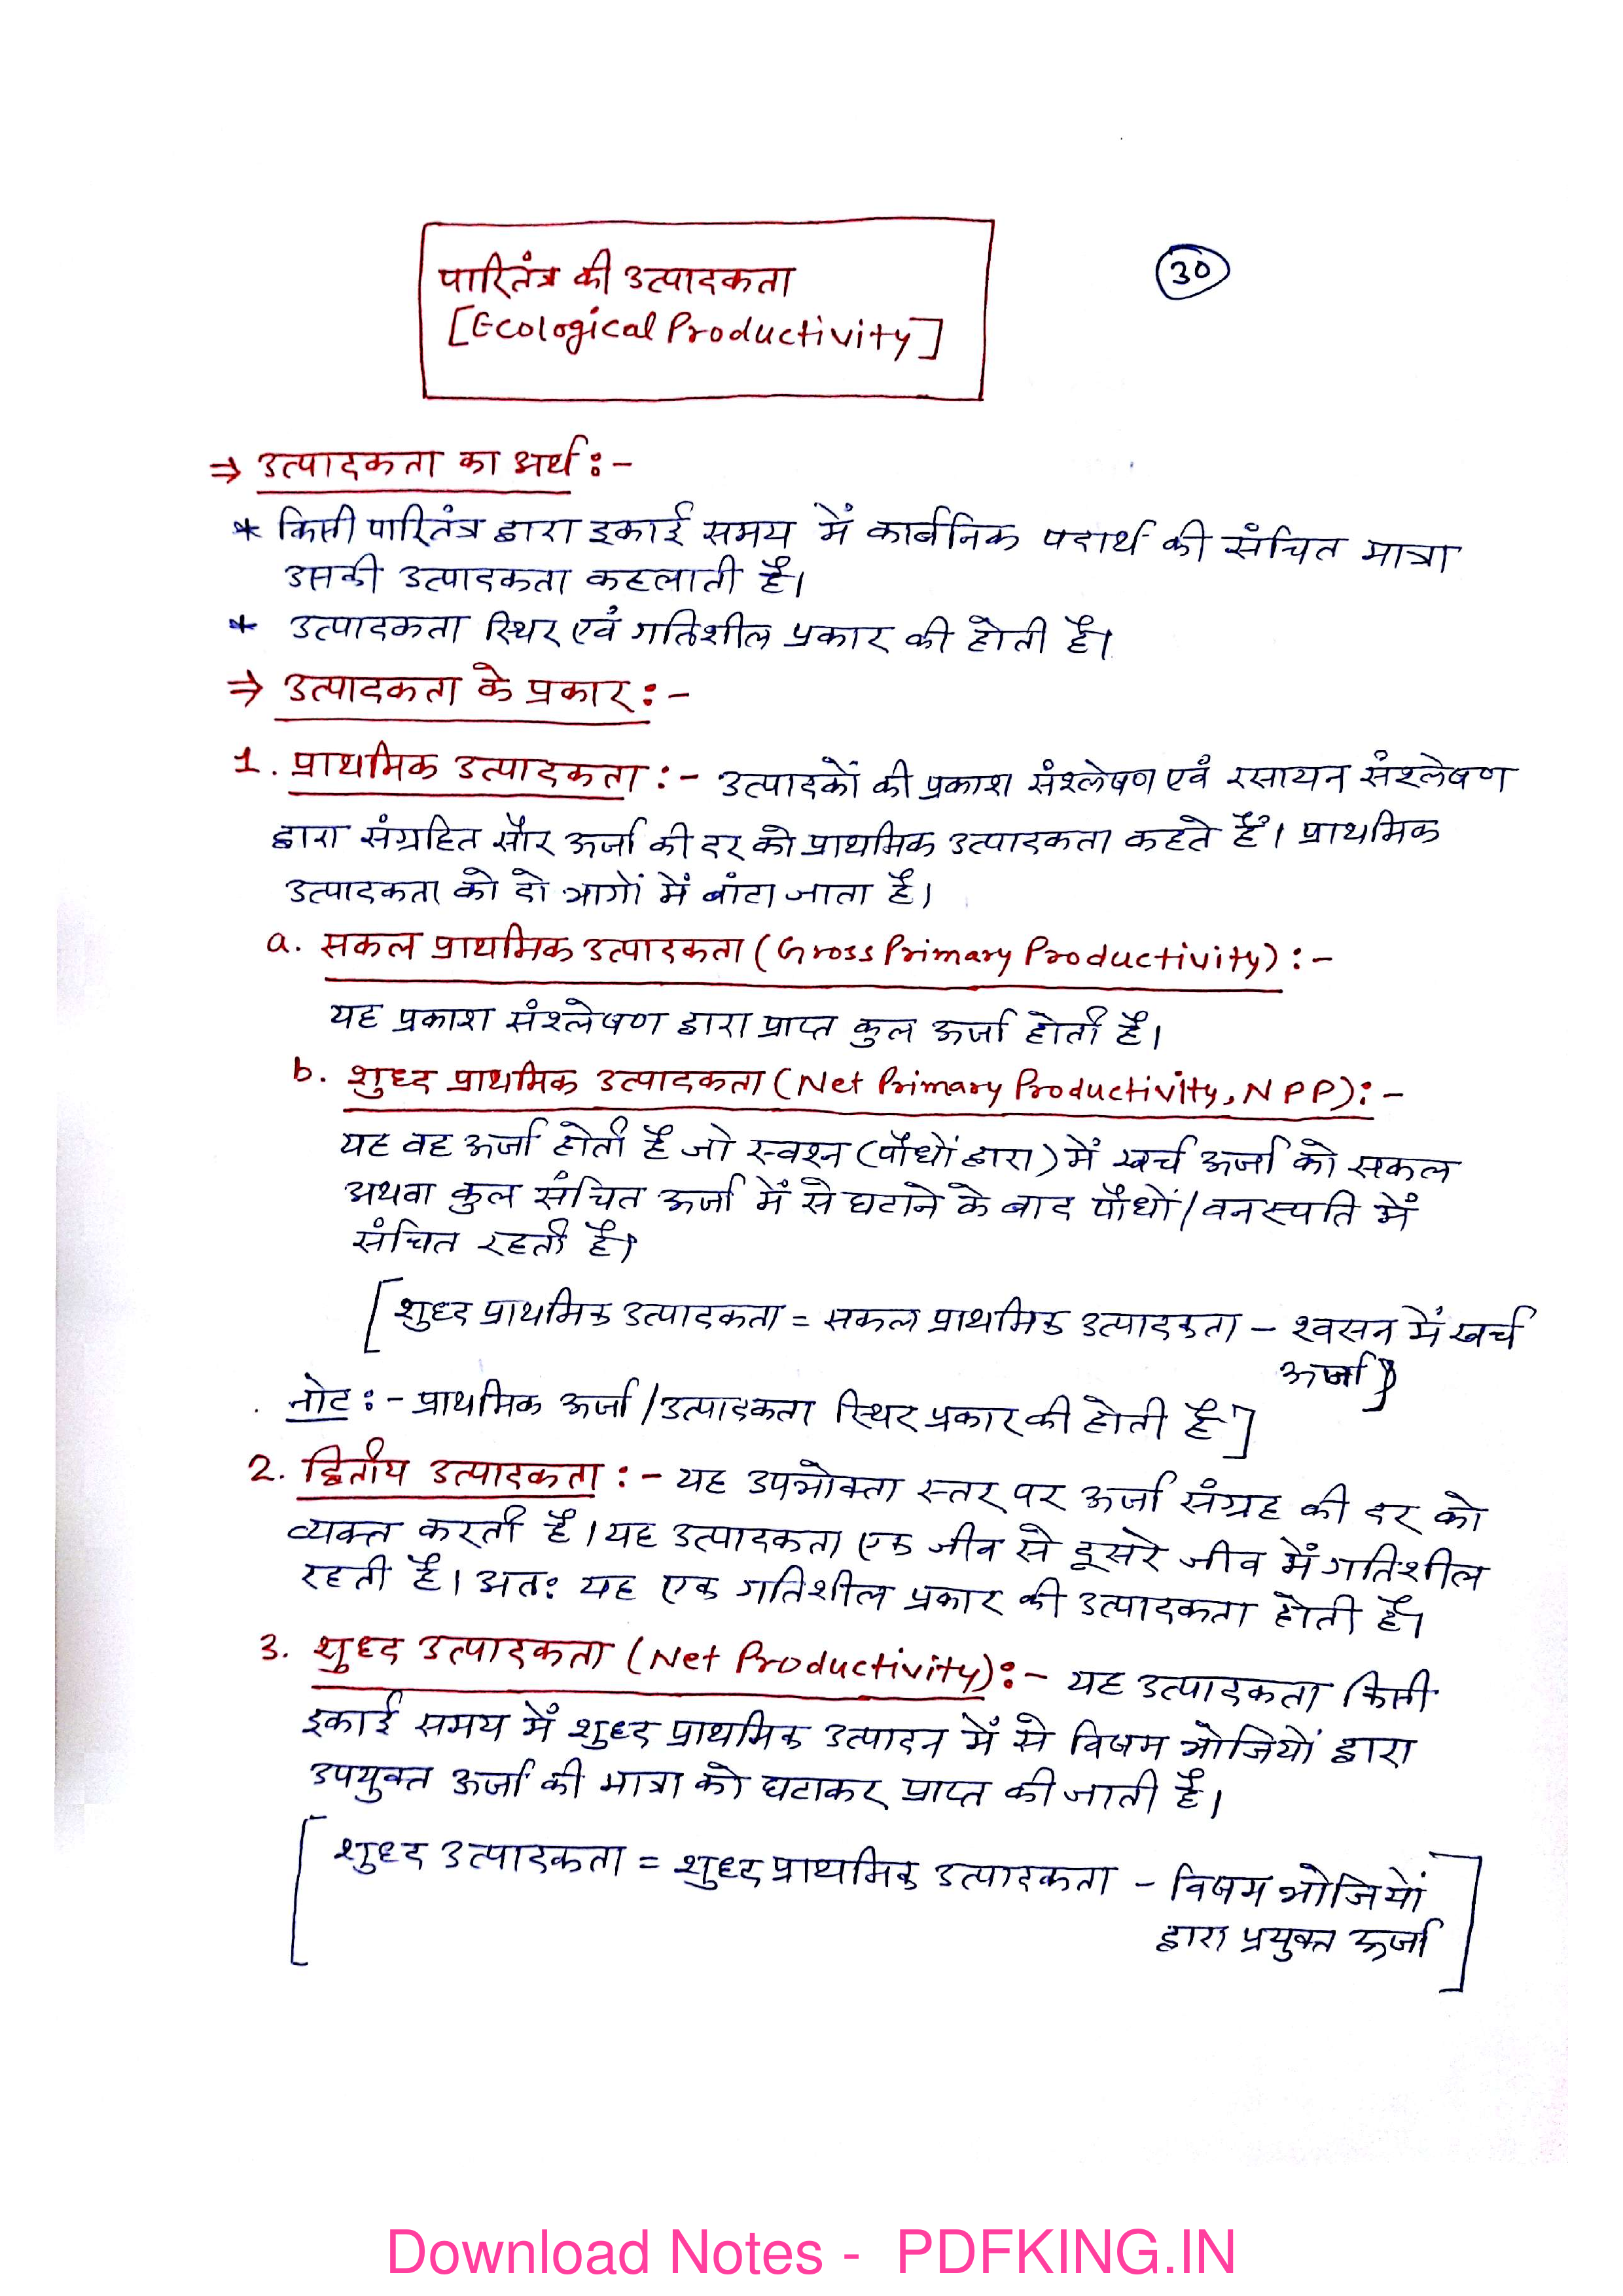 पारितंत्र की उत्पादकता
[Ecological Productivity]
30
⇒ उत्पादकता का अर्थ :-
* किसी पारितंत्र द्वारा इकाई समय में कार्बनिक पदार्थ की संचित मात्रा
उसकी उत्पादकता कहलाती है।
* उत्पादकता स्थिर एवं गतिशील प्रकार की होती है।
⇒ उत्पादकता के प्रकार :-
1. प्राथमिक उत्पादकता :- उत्पादकों की प्रकाश संश्लेषण एवं रसायन संश्लेषण
द्वारा संग्रहित सौर ऊर्जा की दर को प्राथमिक उत्पादकता कहते हैं। प्राथमिक
उत्पादकता को दो भागों में बांटा जाता है।
a. सकल प्राथमिक उत्पादकता (Gross Primary Productivity) :-
यह प्रकाश संश्लेषण द्वारा प्राप्त कुल ऊर्जा होती है।
b. शुध्द प्राथमिक उत्पादकता (Net Primary Productivity, NPP) :-
यह वह ऊर्जा होती है जो स्वश्न (पौधों द्वारा) में खर्च ऊर्जा को सकल
अथवा कुल संचित ऊर्जा में से घटाने के बाद पौधों/वनस्पति में
संचित रहती है।
[शुध्द प्राथमिक उत्पादकता = सकल प्राथमिक उत्पादकता - श्वसन में खर्च
ऊर्जा]
नोट :- प्राथमिक ऊर्जा/उत्पादकता स्थिर प्रकार की होती है]
2. द्वितीय उत्पादकता :- यह उपभोक्ता स्तर पर ऊर्जा संग्रह की दर को
व्यक्त करती है। यह उत्पादकता एक जीव से दूसरे जीव में गतिशील
रहती है। अतः यह एक गतिशील प्रकार की उत्पादकता होती है।
3. शुध्द उत्पादकता (Net Productivity) :- यह उत्पादकता किसी
इकाई समय में शुध्द प्राथमिक उत्पादन में से विषम भोजियों द्वारा
उपयुक्त ऊर्जा की मात्रा को घटाकर प्राप्त की जाती है।
[शुध्द उत्पादकता = शुध्द प्राथमिक उत्पादकता - विषम भोजियों
द्वारा प्रयुक्त ऊर्जा]
Download Notes - PDFKING.IN